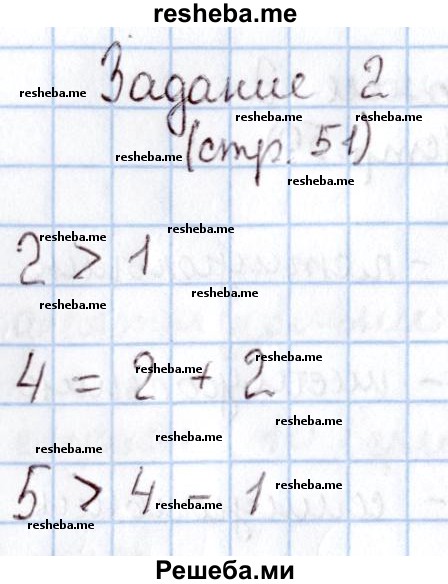 resheba.me
resheba.me Задание 2
resheba.me resheba.me
resheba.me (стр. 51)
resheba.me
resheba.me resheba.me
2 > 1
resheba.me resheba.me
resheba.me resheba.me
4 = 2 + 2
resheba.me
resheba.me resheba.me
5 > 4 - 1
resheba.me resheba.me
resheba.me
Решеба.ми